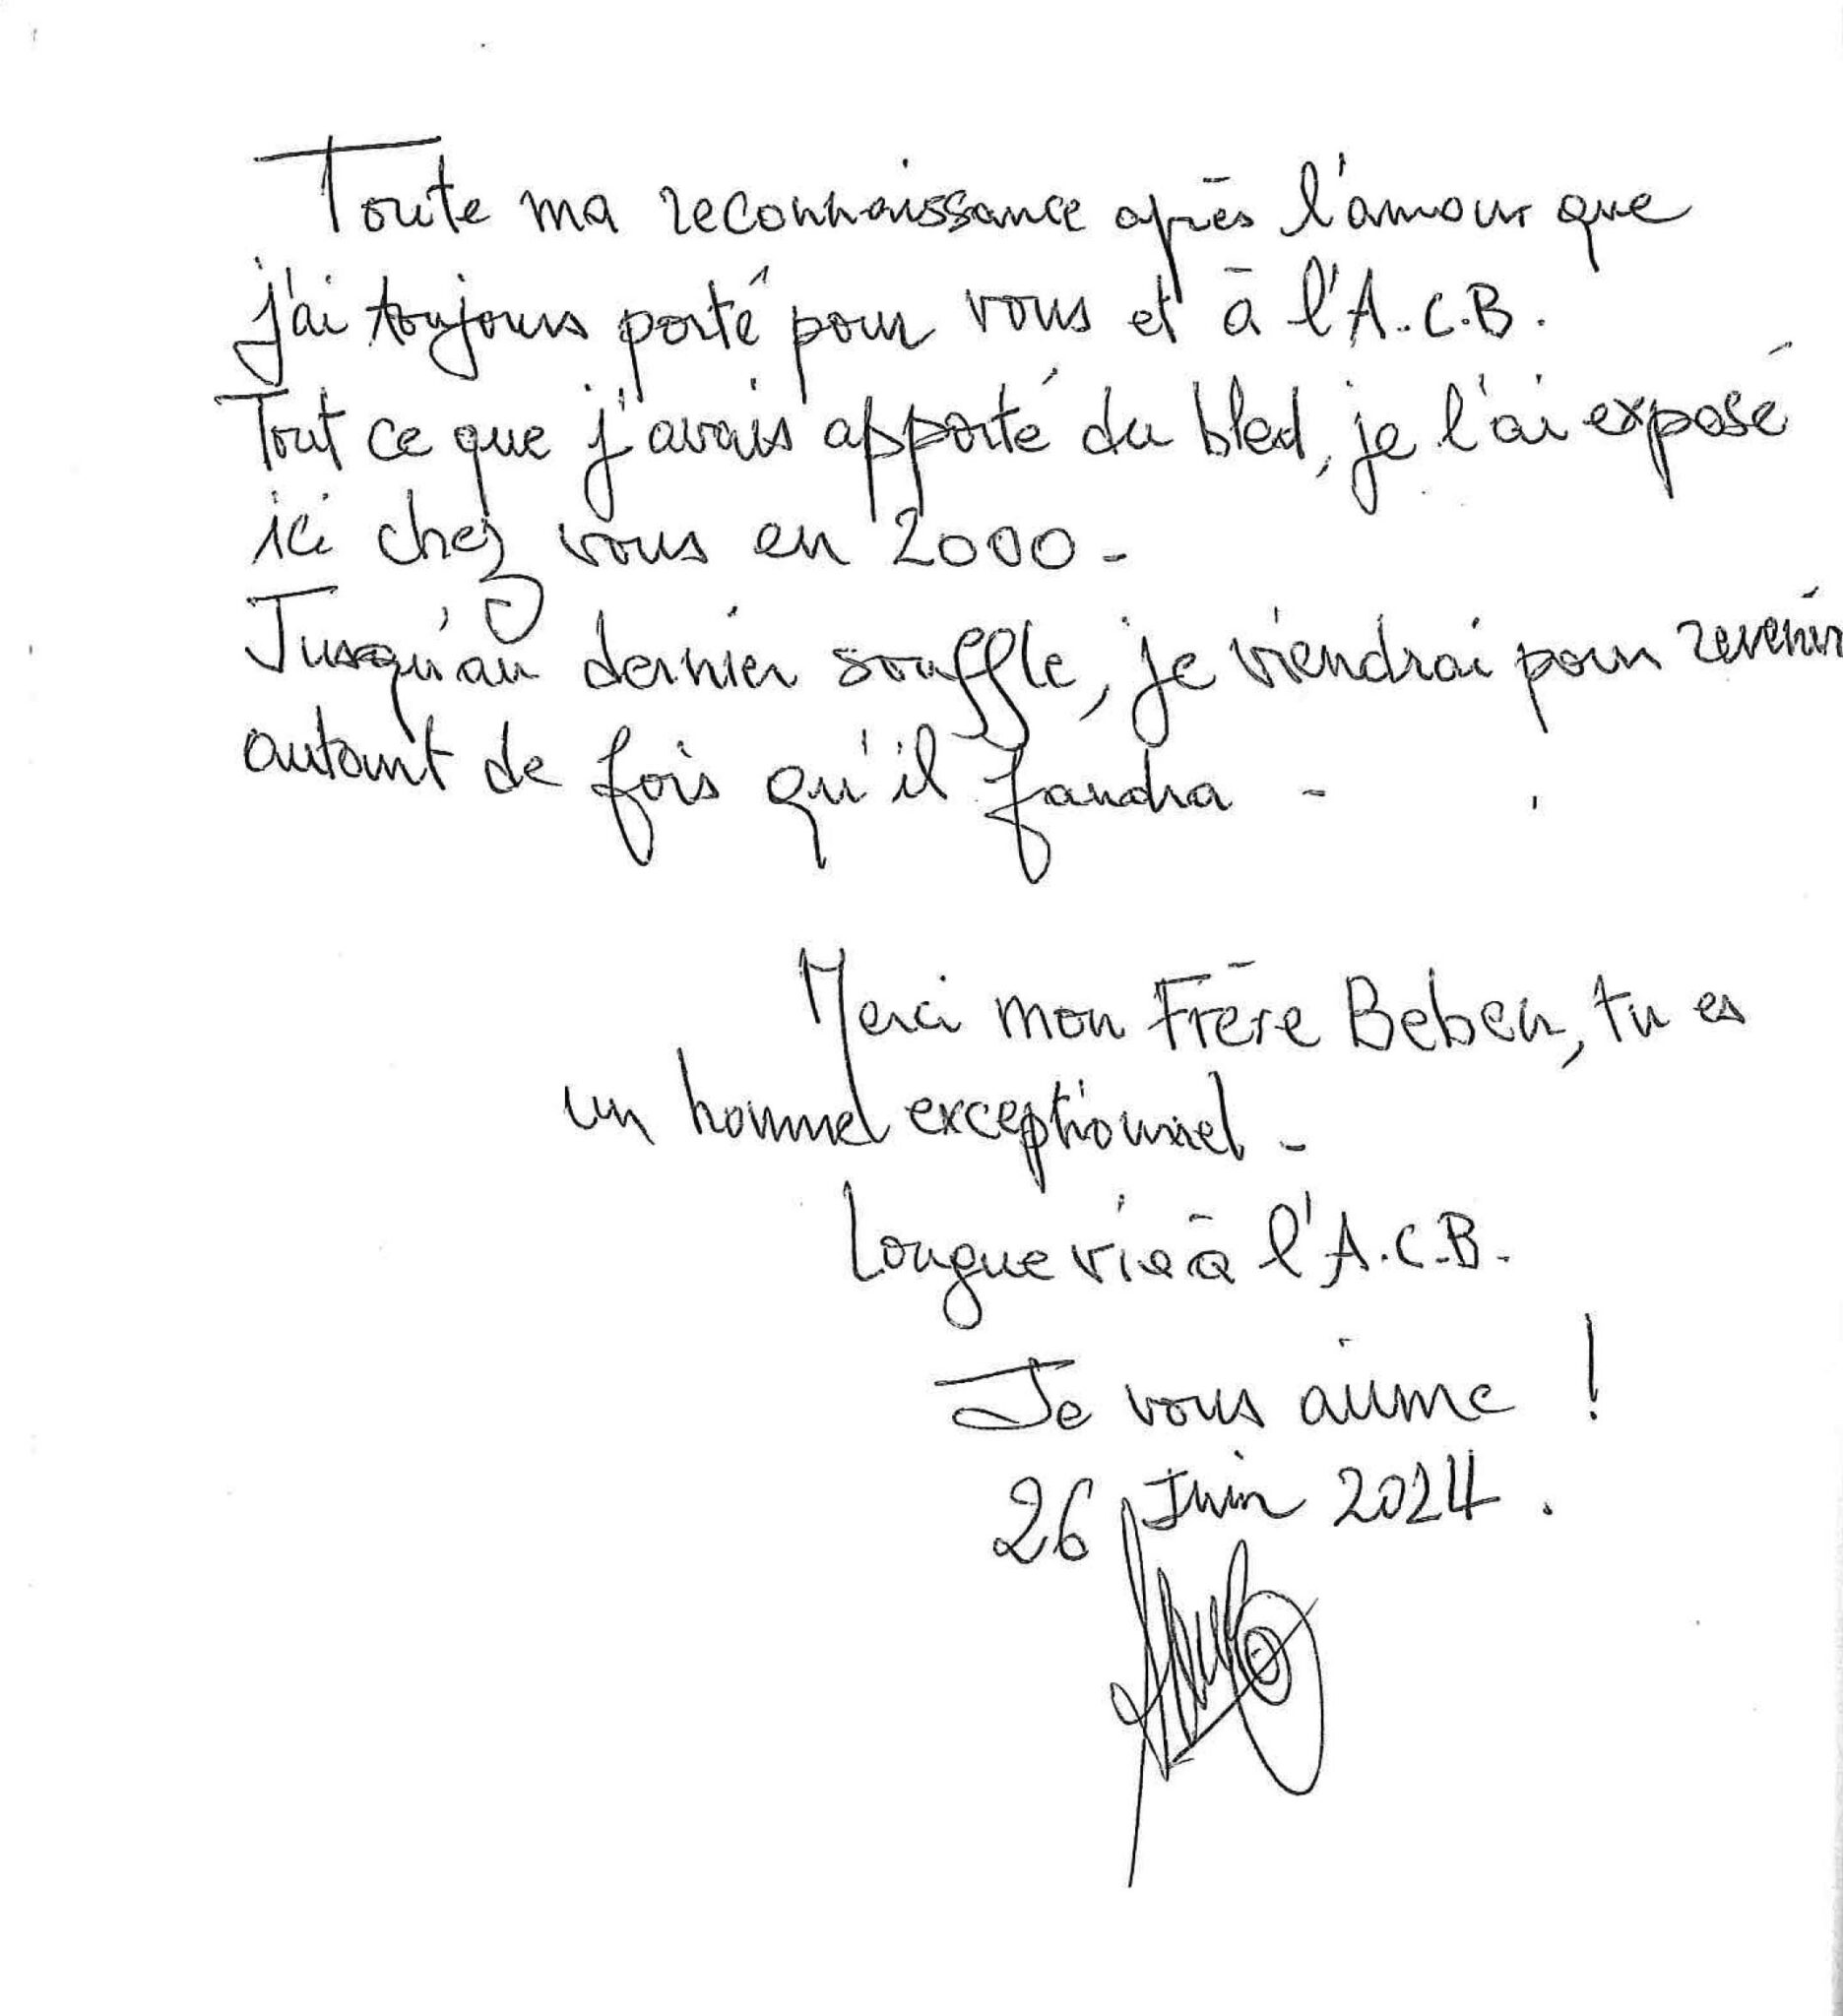 Toute ma reconnaissance après l'amour que
j'ai toujours porté pour vous et à l'A.C.B.
Tout ce que j'avais apporté du bled, je l'ai exposé
ici chez vous en 2000 -
Jusqu'au dernier souffle, je viendrai pour revenir
autant de fois qu'il faudra -
Merci mon Frère Beben, tu es
un homme exceptionnel -
Longue vie à l'A.C.B.
Je vous aime !
26 Juin 2024.